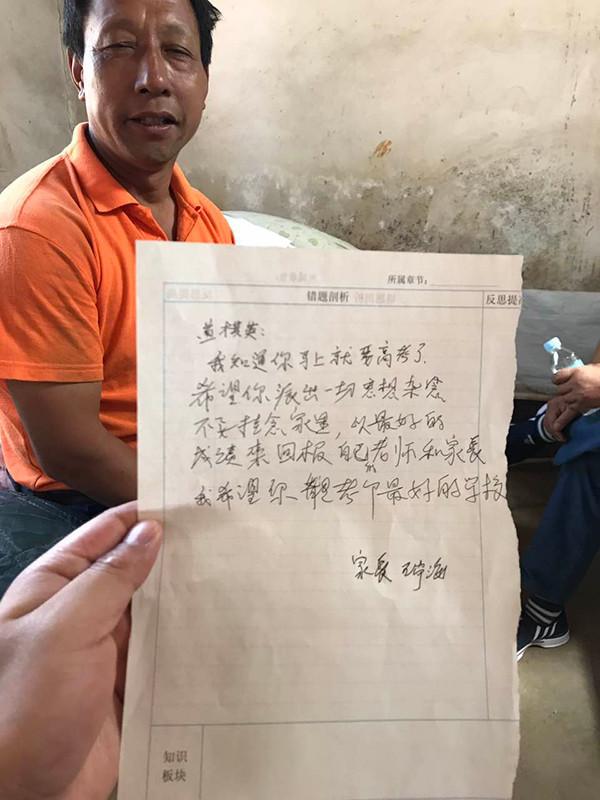 所属章节：
错题剖析
反思提
黄棋英：
我知道你马上就要高考了
希望你派出一切思想杂念
不要挂念家里，以最好的
成绩来回报自己的老师和家长
我希望你能考个最好的学校
家长
知识
板块